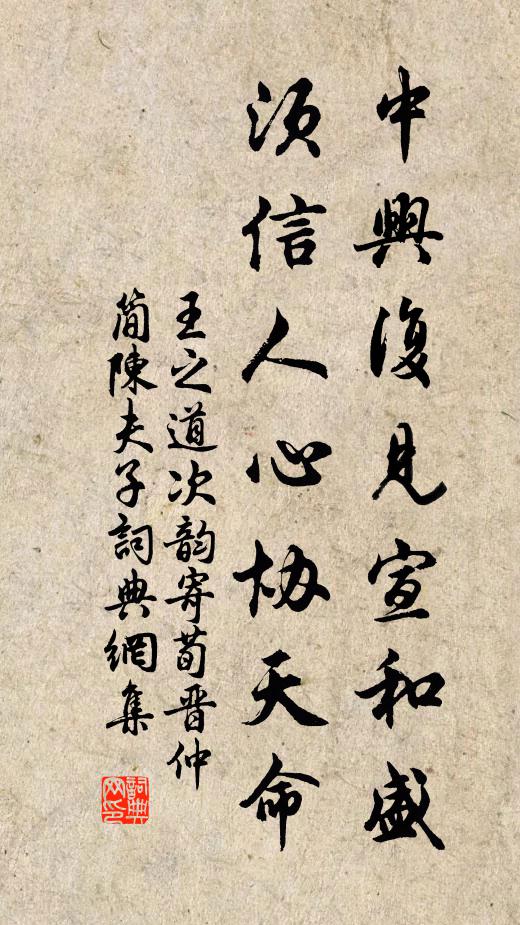 中興復見宣和盛
須信人心協天命
王之道次韵寄荀晋仲
簡陳夫子詞典網集
詞典
网印